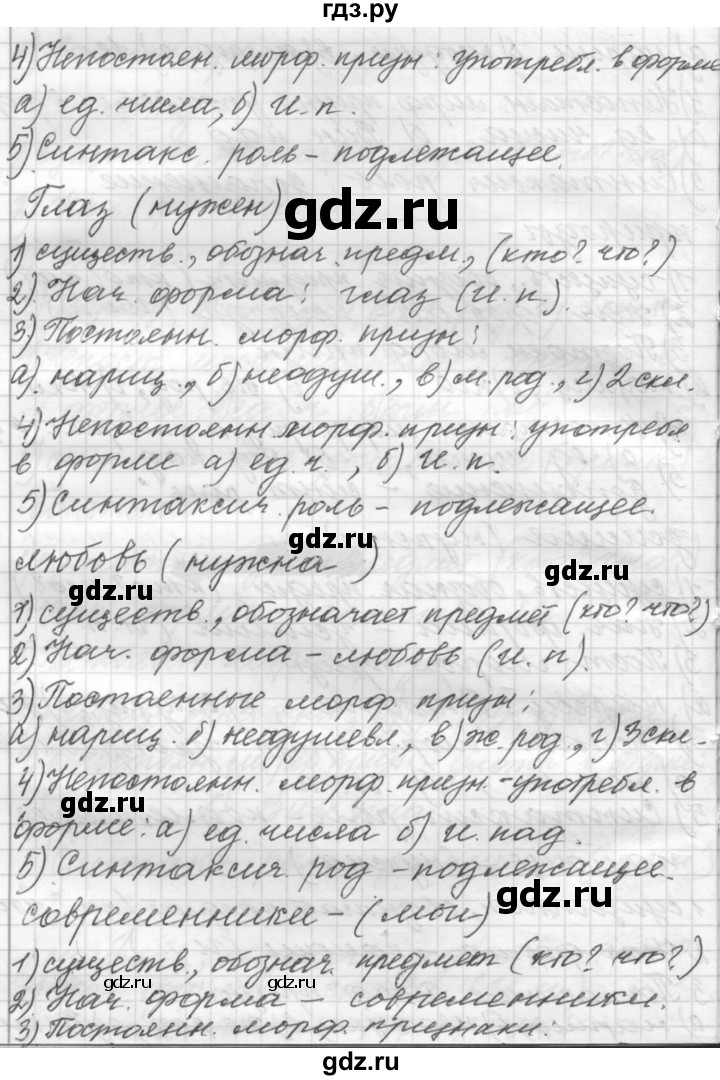 гдз.ру
4) Непостоян. морф. призн: употребл. в форме
а) ед. числа, б) И. п.
5) Синтакс. роль - подлежащее.
Глаз (нужен)
gdz.ru
1) существ., обознач. предм, (кто? что?)
2) Нач. форма: глаз (И. п.).
3) Постоянн. морф. призн:
а) нариц., б) неодуш., в) м. род., г) 2 скл.
4) Непостоянн. морф. призн: употребл
в форме а) ед. ч., б) И. п.
5) Синтаксич. роль - подлежащее.
gdz.ru
любовь (нужна)
gdz.ru
gdz.ru
1) существ., обозначает предмет (кто? что?)
2) Нач. форма - любовь (И. п).
3) Постоенные морф. призн:
а) нариц. б) неодушевл., в) ж. род., г) 3 скл.
4) Непостоянн. морф. призн - употребл. в
gdz.ru
форме: а) ед. числа б) И. пад.
5) Синтаксич. род - подлежащее.
gdz.ru
современники - (мои)
1) существ., обознач. предмет (кто? что?)
gdz.ru
2) Нач. форма - современники.
3) Постоянн. морф. признаки:
gdz.ru